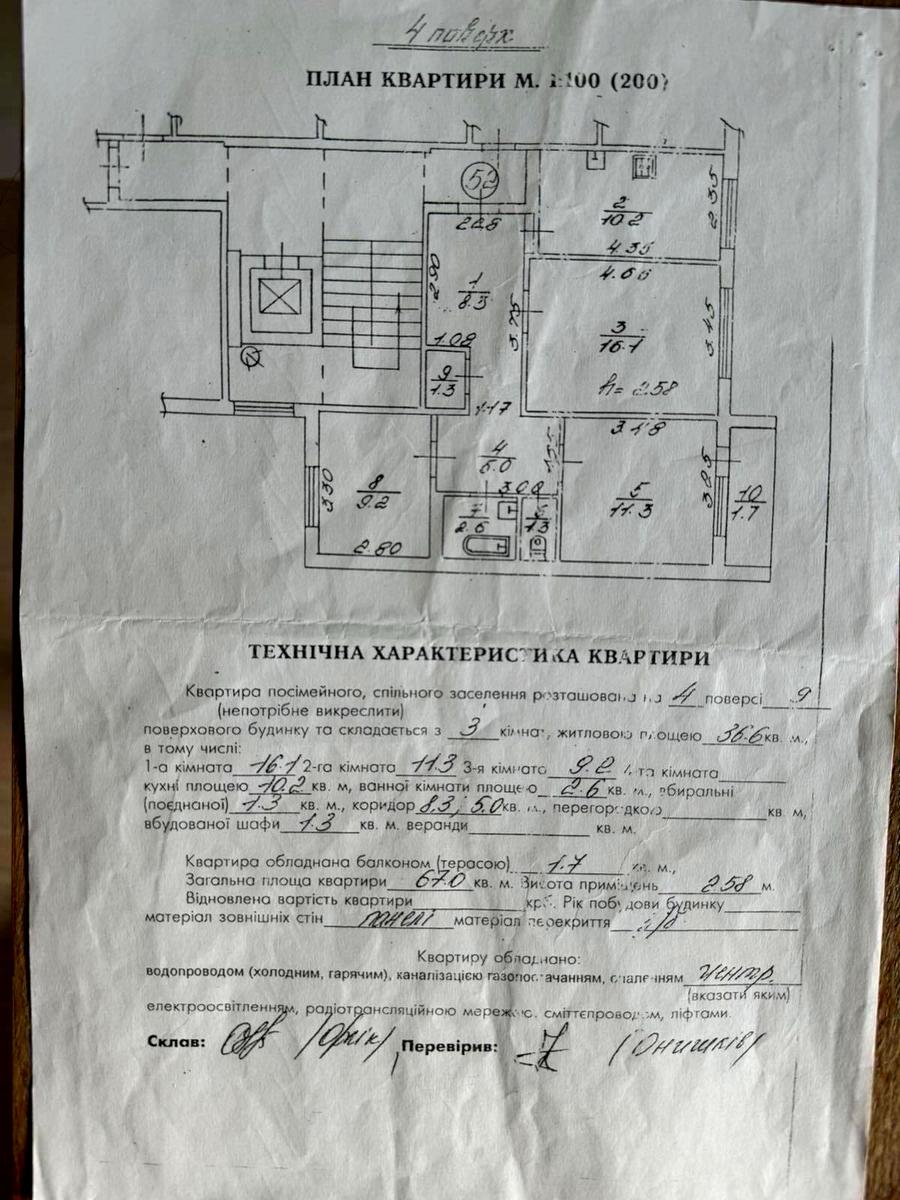 4 поверх
ПЛАН КВАРТИРИ М. 1:100 (200)
52
2
10.2
2.35
4.35
2.28
2.90
1
8.3
1.08
3.75
4.66
3
16.1
3.45
h= 2.58
9
1.3
1.17
3.18
4
5.0
1.55
3.08
8
9.2
3.30
2.80
7
2.6
1.3
5
11.3
3.85
10
1.7
ТЕХНІЧНА ХАРАКТЕРИСТИКА КВАРТИРИ
Квартира посімейного, спільного заселення розташована на 4 поверсі 9
(непотрібне викреслити)
поверхового будинку та складається з 3 кімнат, житловою площею 36.6 кв. м.,
в тому числі:
1-а кімната 16.1 2-га кімната 11.3 3-я кімнато 9.2 4 та кімната
кухні площею 10.2 кв. м, ванної кімнати площею 2.6 кв. м., вбиральні
(поєднаної) 1.3 кв. м., коридор 8.3; 5.0 кв. м., перегородкою кв. м,
вбудованої шафи 1.3 кв. м. веранди кв. м.
Квартира обладнана балконом (терасою) 1.7 кв. м.,
Загальна площа квартири 67.0 кв. м. Висота приміщень 2.58 м.
Відновлена вартість квартири крб. Рік побудови будинку
матеріал зовнішніх стін панелі матеріал перекриття з/б
Квартиру обладнано:
водопроводом (холодним, гарячим), каналізацією газопостачанням, опаленням центр.
(вказати яким)
електроосвітленням, радіотрансляційною мережею, сміттєпроводом, ліфтами.
Склав: Перевірив: